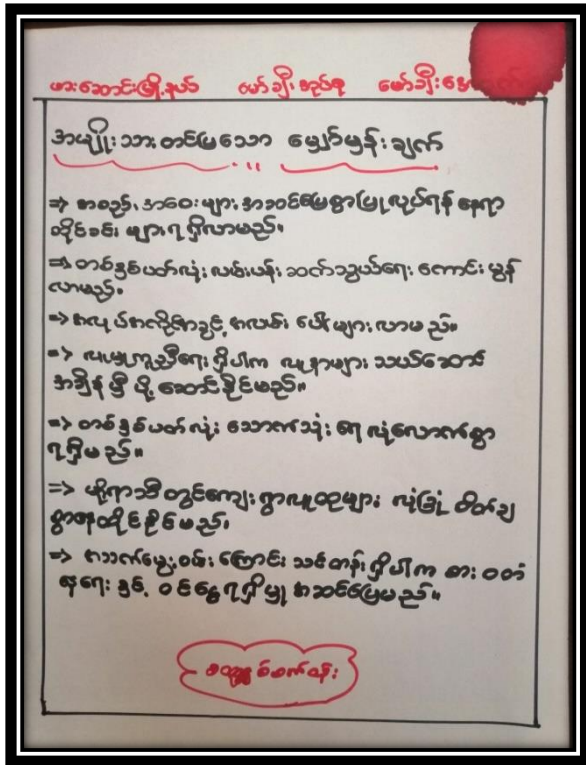 ဖားဆောင်းမြို့နယ် မော်ချီးအုပ်စု မော်ချီး
အမျိုးသားတင်မြသော မျှော်မှန်းချက်
=> အစည်းအဝေးများ အဆင်ပြေစွာပြုလုပ်ရန် နေရာ
ထိုင်ခင်း များရရှိလာမည်။
=> တစ်နှစ်ပတ်လုံး လမ်းပန်း ဆက်သွယ်ရေး ကောင်းမွန်
လာမည်။
=> အလုပ်အကိုင်အခွင့်အလမ်း ပေါများလာမည်။
=> လူမှုကူညီရေး ရှိပါက လူနာများ သယ်ဆောင်
အချိန်မှီ ပို့ဆောင်နိုင်မည်။
=> တစ်နှစ်ပတ်လုံး သောက်သုံးရေ လုံလောက်စွာ
ရရှိမည်။
=> မိုးရာသီတွင်ကျေးရွာလူထုများ လုံခြုံ စိတ်ချ
စွာနေထိုင်နိုင်မည်။
=> အသက်မွေးဝမ်းကြောင်း သင်တန်းရှိပါက စားဝတ်
နေရေးနှင့် ဝင်ငွေရရှိမှု အဆင်ပြေမည်။